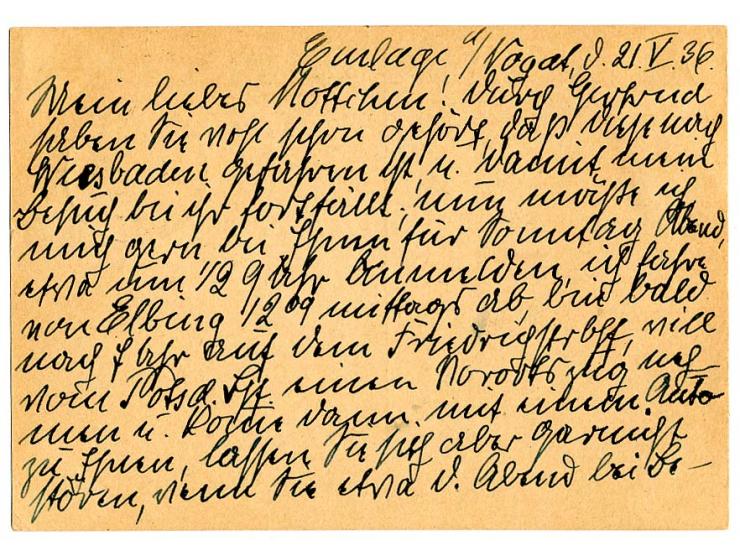 Einlage a/ Nogat, d. 21.V.36.
Mein liebes Lottchen! Durch Gertrud
haben Sie wohl schon gehört, daß diese nach
Wiesbaden gefahren ist, u. damit mein
Besuch bei ihr fortfällt; nun möchte ich
mich gern bei Ihnen für Sonntag Abend,
etwa um 1/2 9 Uhr anmelden, ich fahre
von Elbing 12 09 mittags ab, bin bald
nach 7 Uhr auf dem Friedrichstrbhf, will
vom Potsd. Bhf. einen Vorortszug neh-
men u. komme dann mit einem Auto
zu Ihnen, lassen Sie sich aber garnicht
stören, wenn Sie etwa d. Abend bei Be-